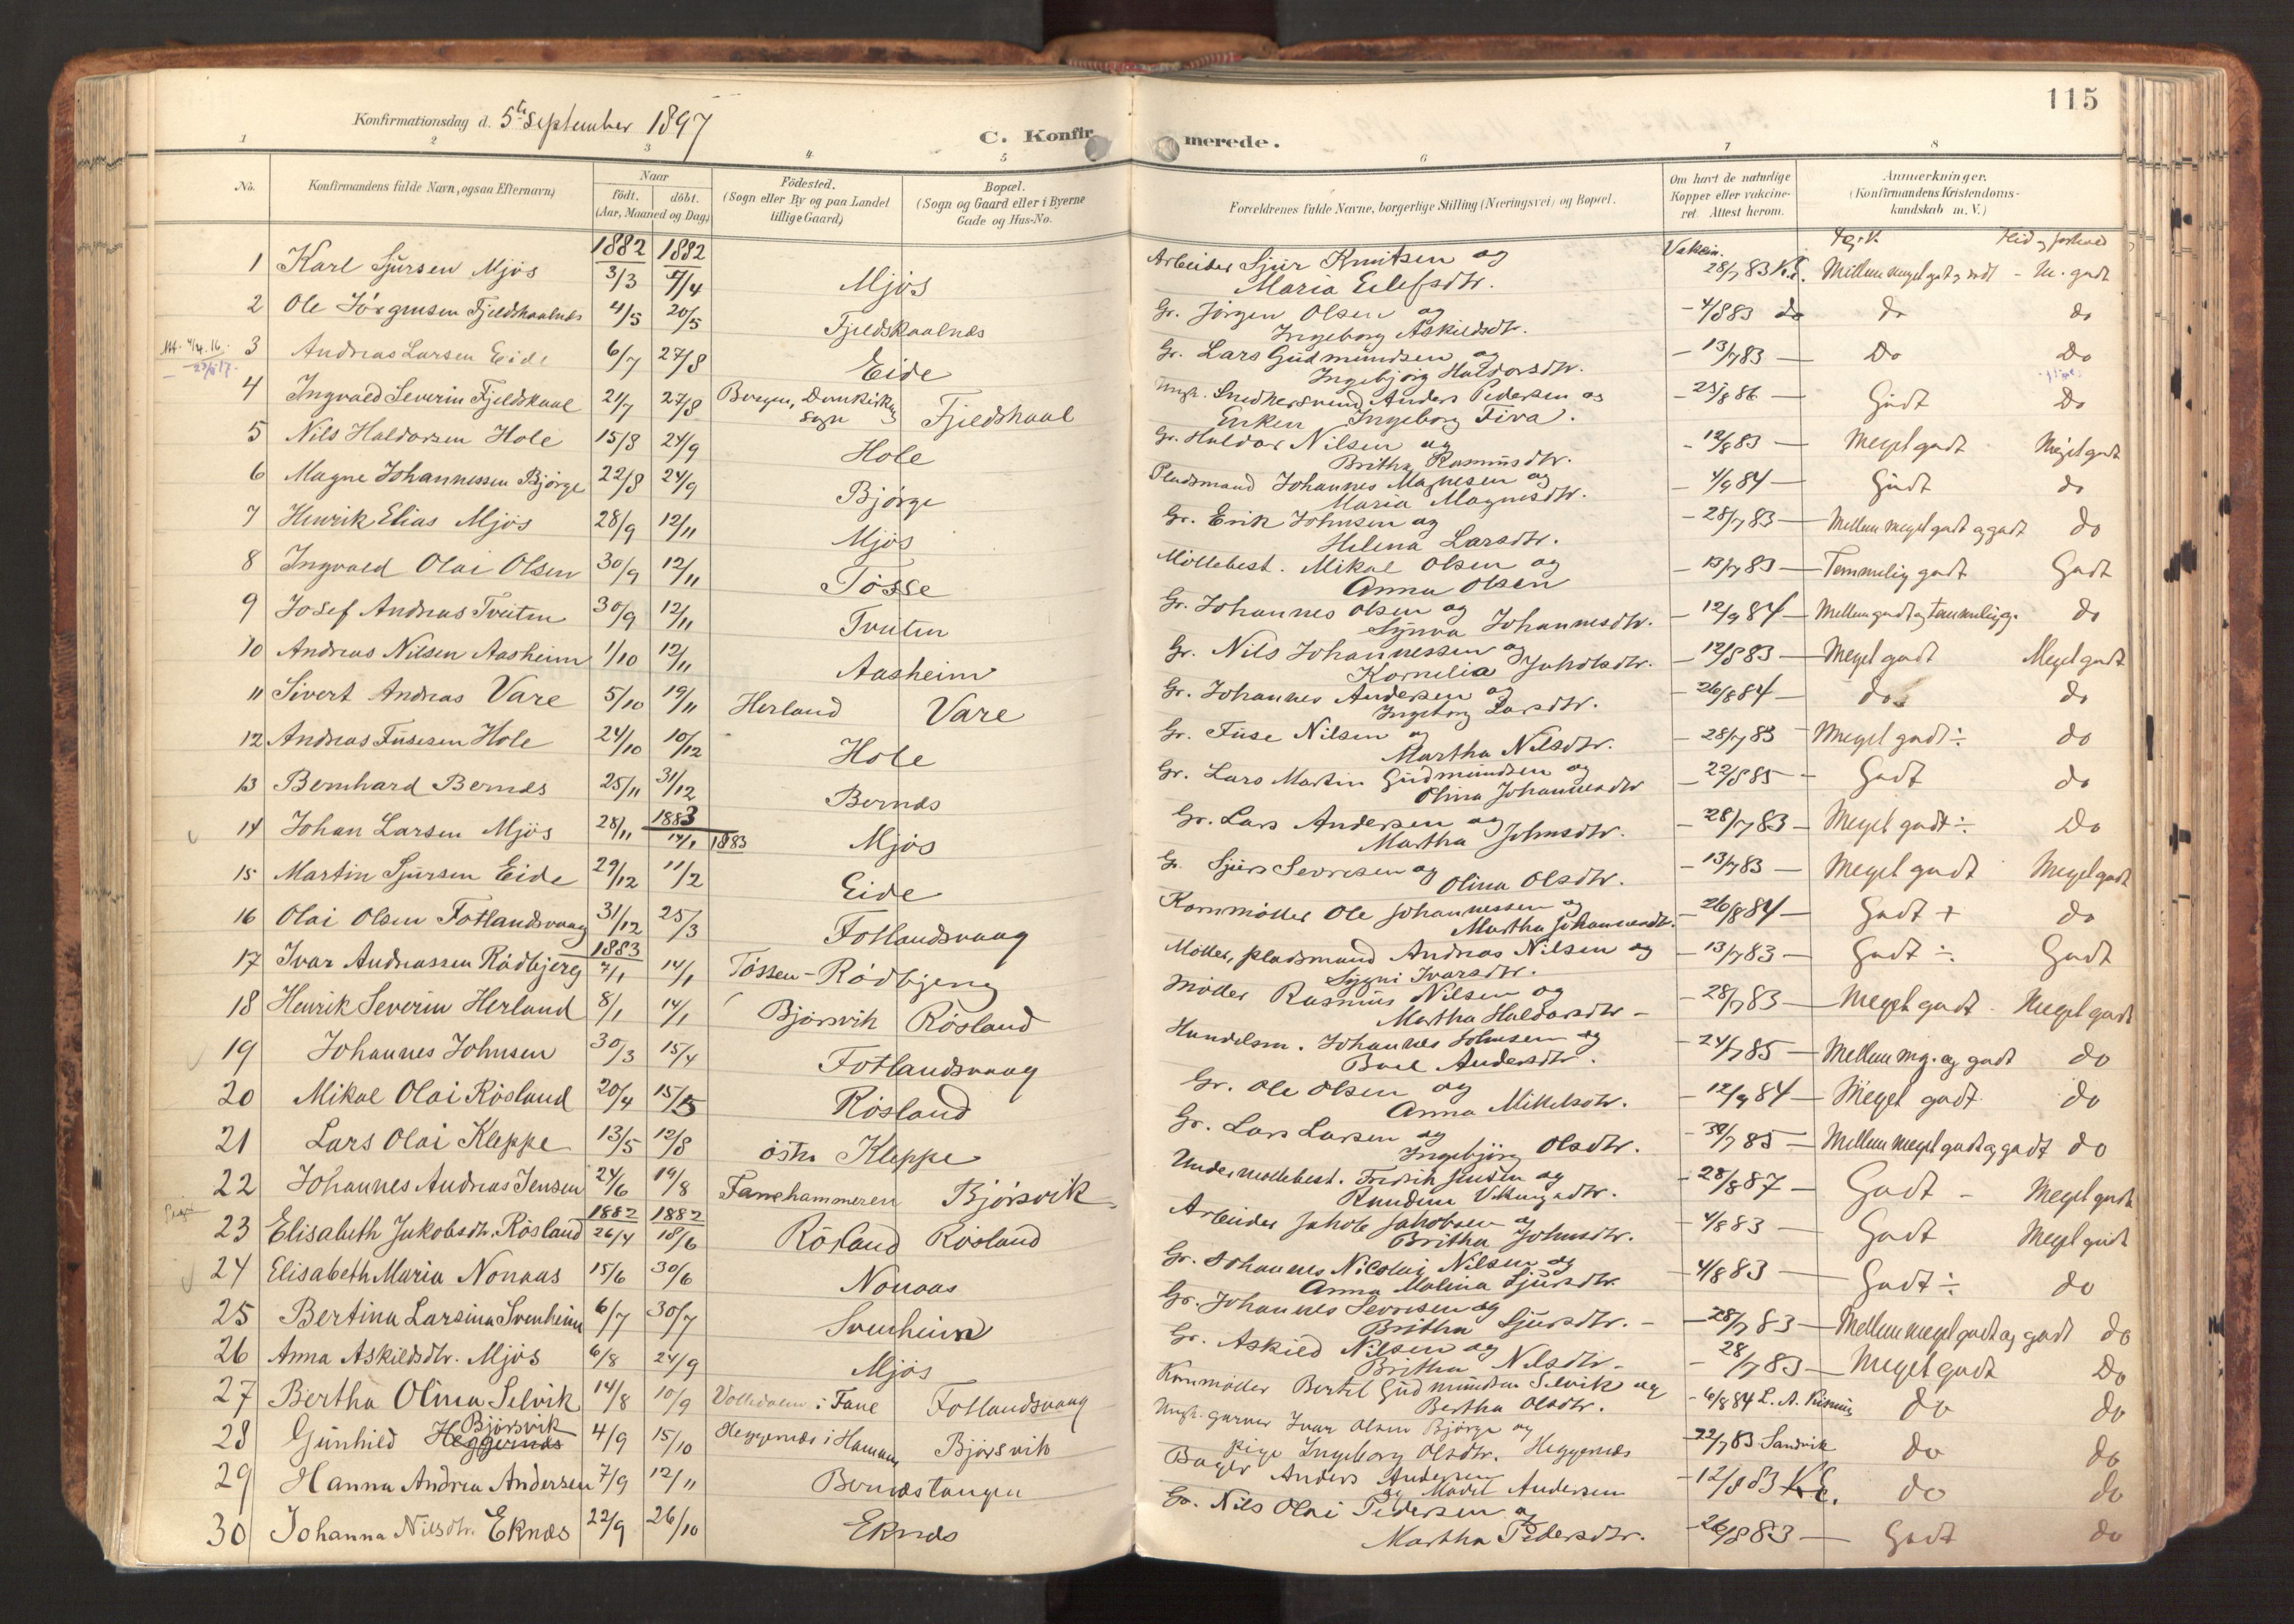 115
Konfirmationsdag d. 5te September 1897
C. Konfirmerede.
1 2 3 4 5 6 7 8
No. Konfirmandens fulde Navn, ogsaa Efternavn) Naar födt. döbt. (Aar, Maaned og Dag) Födested. (Sogn eller By og paa Landet tillige Gaard) Bopæl. (Sogn og Gaard eller i Byerne Gade og Hus-No. Forældrenes fulde Navne, borgerlige Stilling (Næringsvei) og Bopæl. Om havt de naturlige Kopper eller vakcineret. Attest herom. Anmærkninger. (Konfirmandens Kristendomskundskab m. V.)
1882 1882 Vakcin. Flid og forhold
1 Karl Sjursen Mjøs 3/3 Mjøs Arbeider Sjur Knutsen og Maria Eilefsdtr. 28/7 83 K.E. M. godt
2 Ole Jørgensen Fjeldskaalnes 4/5 20/5 Fjeldskaalnæs Gr. Jørgen Olsen og Ingeborg Askildsdtr. - 4/8 83 do do do
3 Andreas Larsen Eide 6/7 27/8 Eide Gr. Lars Gudmundsen og Ingebjørg Haldorsdtr. - 13/7 83 - Do Do
4 Ingvald Severin Fjeldskaal 21/7 27/8 Bergen, Domkirkens sogn Fjeldskaal Ungk. Snedkersvend Anders Pedersen og Enken Ingeborg Fiva. - 25/8 86 - Godt Do
5 Nils Haldorsen Hole 15/8 24/9 Hole Gr. Haldor Nilsen og Britha Rasmusdtr. - 12/8 83 - Meget godt Meget godt
6 Magne Johannessen Bjørge 22/8 24/9 Bjørge Pladsmand Johannes Magnesen og Maria Magnesdtr. - 4/9 84 - Godt do
7 Henrik Elias Mjøs 28/9 12/11 Mjøs Gr. Erik Johnsen og Helena Larsdtr. - 28/7 83 - Mellem meget godt og godt do
8 Ingvald Olai Olsen 30/9 12/11 Tøsse Møllebest. Mikal Olsen og Anna Olsen - 13/7 83 - Temmelig godt Godt
9 Josef Andreas Tveiten 30/9 12/11 Tveiten Gr. Johannes Olsen og Synva Johannesdtr. - 12/9 84 - Mellem godt og temmelig g. do
10 Andreas Nilsen Aasheim 1/10 12/11 Aasheim Gr. Nils Johannessen og Kornelia Jakobsdtr. - 12/8 83 - Meget godt Meget godt
11 Sivert Andreas Vare 5/10 19/11 Herland Vare Gr. Johannes Andersen og Ingeborg Larsdtr. - 26/8 84 - do do
12 Andreas Fusesen Hole 24/10 10/12 Hole Gr. Fuse Nilsen og Martha Nilsdtr. - 28/7 83 Meget godt ÷ do
13 Bernhard Bernæs 25/11 31/12 Bernæs Gr. Lars Martin Gudmundsen og Olina Johannesdtr - 22/8 85 - Godt do
1883
14 Johan Larsen Mjøs 28/11 14/1 1883 Mjøs Gr. Lars Andersen og Martha Johnsdtr. - 28/7 83 - Meget godt ÷ Do
15 Martin Sjursen Eide 29/12 11/2 Eide Gr. Sjurs Sevresen og Olina Olsdtr. - 13/7 83 - Meget godt Meget godt
16 Olai Olsen Fotlandsvaag 31/12 25/3 Fotlandsvaag Kornmøller Ole Johannessen og Martha Johannesdtr. - 26/8 84 - Godt + do
1883
17 Ivar Andreassen Rødbjerg 7/1 14/1 Tøssen - Rødbjerg Møller, pladsmand Andreas Nilsen og Sygni Ivarsdtr. - 13/7 83 - Godt ÷ Godt
18 Henrik Severin Herland 8/1 14/1 Bjørsvik Røsland Møller Rasmus Nilsen og Martha Haldorsdtr - - 28/7 83 - Meget godt Meget godt
19 Johannes Johnsen 30/3 15/4 Fotlandsvaag Handelsm. Johannes Johnsen og Boel Andersdtr. - 24/7 85 - Mellem mg. og godt do
20 Mikal Olai Røsland 20/4 15/5 Røsland Gr. Ole Olsen og Anna Mikelsdtr. - 12/9 84 - Meget godt do
21 Lars Olai Kleppe 13/5 12/8 østre Kleppe Gr. Lars Larsen og Ingebjørg Olsdtr. - 30/7 85 - Mellem meget godt og godt do
22 Johannes Andreas Jensen 24/6 19/8 Fanehammeren Bjørsvik Undermøllebest. Fredrik Jensen og Randine Vikingsdtr. - 28/8 87 - Godt - Meget godt
1882 1882
23 Elisabeth Jakobsdtr. Røsland 26/4 18/6 Røsland Røsland Arbeider Jakob Jakobsen og Britha Johnsdtr. - 4/8 83 - Godt Meget godt
24 Elisabeth Maria Nonaas 15/6 30/6 Nonaas Gr. Johannes Nicolai Nilsen og Anna Malina Sjursdtr. - 4/8 83 - Godt ÷ do
25 Bertina Larsina Svenheim 6/7 30/7 Svenheim Gr. Johannes Sevresen og Britha Sjursdtr. - - 28/7 83 - Mellem meget godt og godt do
26 Anna Askildsdtr. Mjøs 6/8 24/9 Mjøs Gr. Askild Nilsen og Britha Nilsdtr - - 28/7 83 - Meget godt Do
27 Bertha Olina Selvik 14/8 10/9 i Fane Fotlandsvaag Kornmøller Bertel Gudmundsen Selvik og Bertha Olsdtr. - 6/8 84 L. A. do do
28 Gunhild Heggernæs Bjørsvik 4/9 15/10 Heggernæs i Hammer Bjørsvik Ungk. garver Ivar Olsen Bjørge og Pige Ingeborg Olsdtr. Heggernæs - 22/7 83 Sandvik do do
29 Hanna Andrea Andersen 7/9 12/11 Bernæstangen Bager Anders Andersen og Madel Andersen - 12/8 83 K.E. do do
30 Johanna Nilsdtr. Eknæs 22/9 26/10 Eknæs Gr. Nils Olai Pedersen og Martha Pedersdtr. - 26/8 83 - Godt do